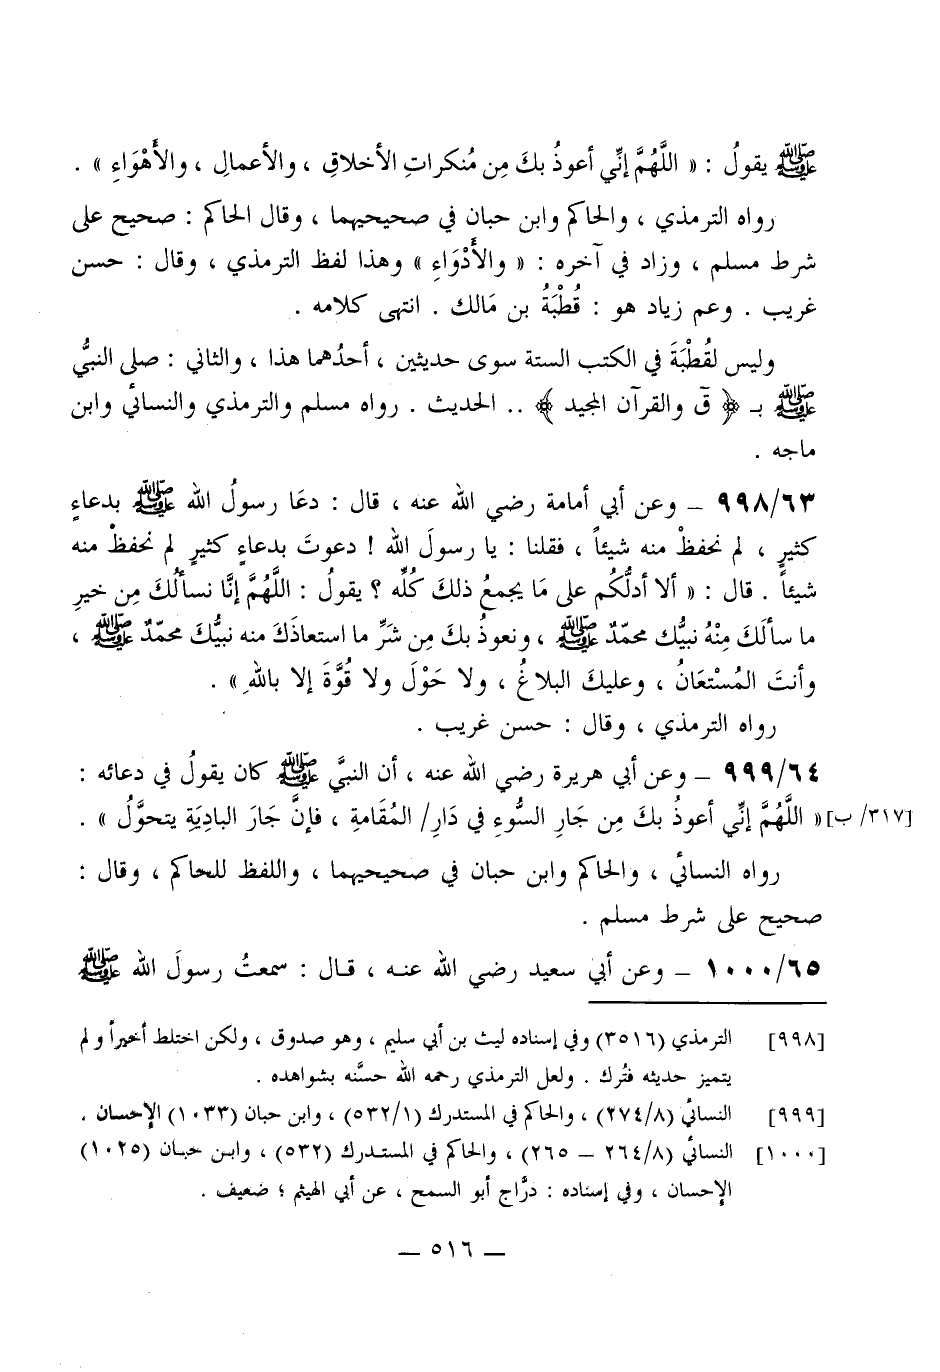 ﷺ يقولُ : « اللَّهُمَّ إنِّي أعوذُ بكَ مِن مُنكراتِ الأخلاقِ ، والأعمالِ ، والأَهْوَاءِ » .
رواه الترمذي ، والحاكم وابن حبان في صحيحيهما ، وقال الحاكم : صحيح على
شرط مسلم ، وزاد في آخره : « والأَدْوَاءِ » وهذا لفظ الترمذي ، وقال : حسن
غريب . وعم زياد هو : قُطْبَةُ بن مَالك . انتهى كلامه .
وليس لقُطْبَةَ في الكتب الستة سوى حديثين ، أحدُهما هذا ، والثاني : صلى النبيُّ
ﷺ بـ ﴿ قَ والقرآن المجيد ﴾ .. الحديث . رواه مسلم والترمذي والنسائي وابن
ماجه .
٩٩٨/٦٣ – وعن أبي أمامة رضي الله عنه ، قال : دعَا رسولُ الله ﷺ بدعاءٍ
كثيرٍ ، لم نحفظْ منه شيئاً ، فقلنا : يا رسولَ الله ! دعوتَ بدعاءٍ كثيرٍ لم نحفظْ منه
شيئاً . قال : « ألا أدلُّكُم على مَا يجمعُ ذلكَ كُلَّه ؟ يقولُ : اللَّهُمَّ إنَّا نسألُكَ مِن خيرِ
ما سألَكَ مِنْهُ نبيُّك محمّدٌ ﷺ ، ونعوذُ بكَ مِن شَرِّ ما استعاذَكَ منه نبيُّكَ محمّدٌ ﷺ ،
وأنتَ المُسْتعَانُ ، وعليكَ البلاغُ ، ولا حَوْلَ ولا قُوَّةَ إلا باللهِ » .
رواه الترمذي ، وقال : حسن غريب .
٩٩٩/٦٤ – وعن أبي هريرة رضي الله عنه ، أن النبيَّ ﷺ كان يقولُ في دعائه :
[٣١٧/ ب] « اللَّهُمَّ إنِّي أعوذُ بكَ مِن جَارِ السُّوءِ في دَارِ/ المُقَامةِ ، فإنَّ جَارَ البادِيَةِ يتحوَّلُ » .
رواه النسائي ، والحاكم وابن حبان في صحيحيهما ، واللفظ للحاكم ، وقال :
صحيح على شرط مسلم .
١٠٠٠/٦٥ – وعن أبي سعيد رضي الله عنـه ، قـال : سمعتُ رسولَ الله ﷺ
[٩٩٨] الترمذي (٣٥١٦) وفي إسناده ليث بن أبي سليم ، وهو صدوق ، ولكن اختلط أخيراً ولم
يتميز حديثه فتُرك . ولعل الترمذي رحمه الله حسَّنه بشواهده .
[٩٩٩] النسائي (٢٧٤/٨) ، والحاكم في المستدرك (٥٣٢/١) ، وابن حبان (١٠٣٣) الإحسان .
[١٠٠٠] النسائي (٢٦٤/٨ – ٢٦٥) ، والحاكم في المستـدرك (٥٣٢) ، وابـن حبـان (١٠٢٥)
الإحسان ، وفي إسناده : درَّاج أبو السمح ، عن أبي الهيثم ؛ ضعيف .
– ٥١٦ –